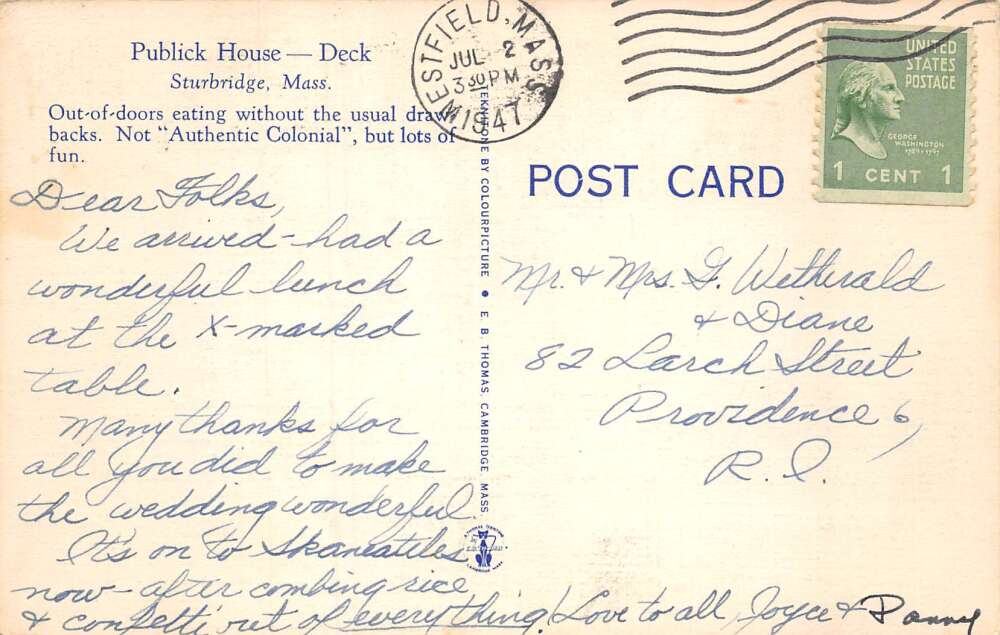 Publick House — Deck
Sturbridge, Mass.
Out-of-doors eating without the usual draw-
backs. Not "Authentic Colonial", but lots of
fun.
Dear Folks,
We arrived - had a
wonderful lunch
at the X-marked
table.
Many thanks for
all you did to make
the wedding wonderful.
It's on to Skaneatiles
now - after combing rice
& confetti out of everything! Love to all, Joyce &
WESTFIELD, MASS
JUL 2
3 30 PM
1947
TEKNITONE BY COLOURPICTURE • E. B. THOMAS, CAMBRIDGE, MASS.
UNITED
STATES
POSTAGE
GEORGE
WASHINGTON
1789-1797
1 CENT 1
POST CARD
Mr. & Mrs. G. Witherald
& Diane
82 Larch Street
Providence 6,
R.I.